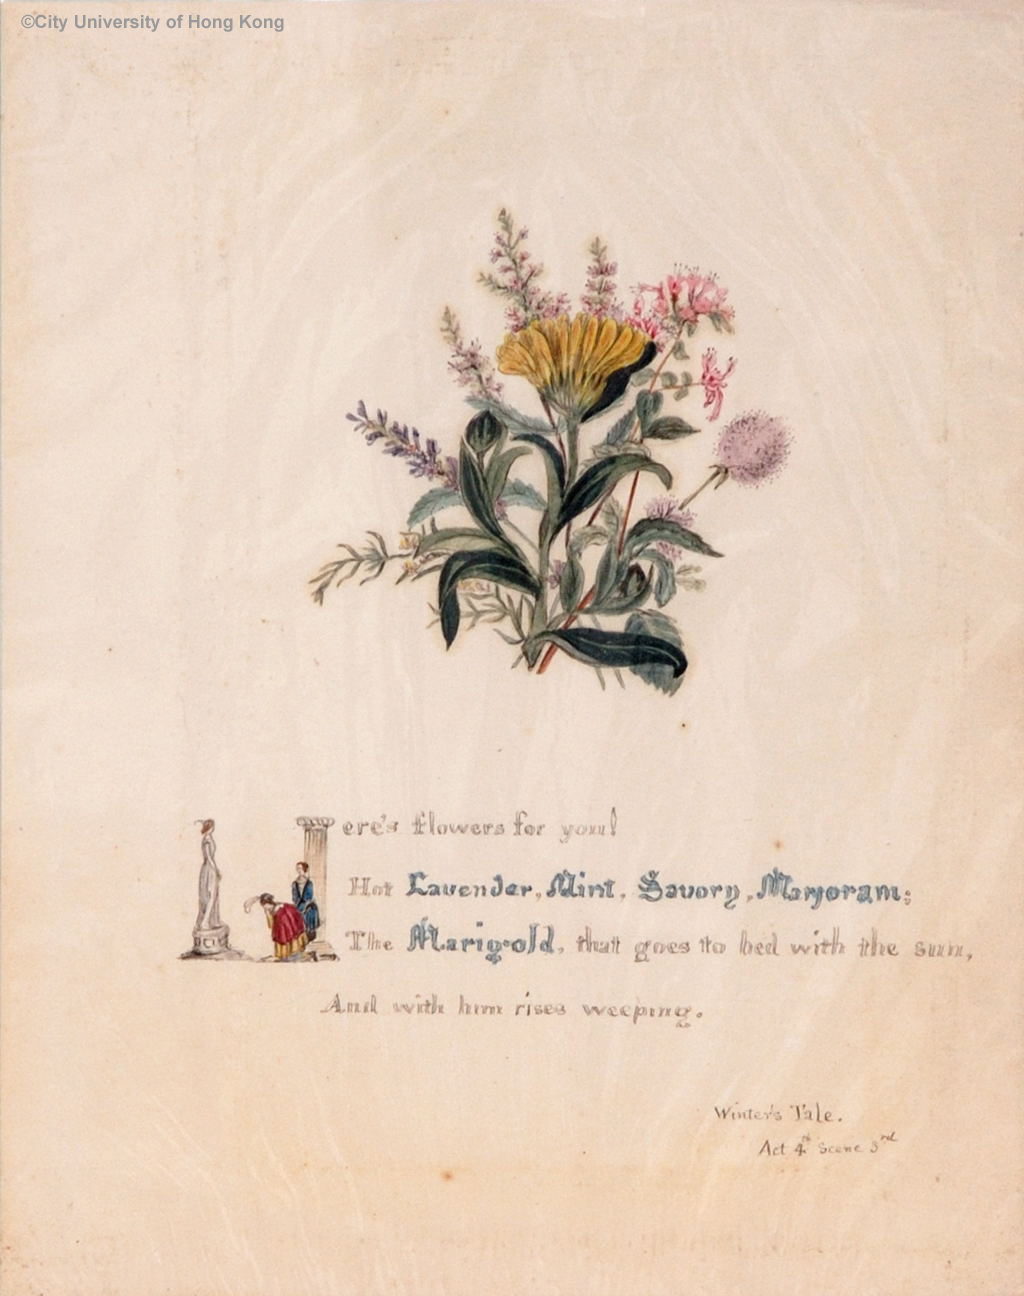 ©City University of Hong Kong
Here's flowers for you!
Hot Lavender, Mint, Savory, Marjoram;
The Marigold, that goes to bed with the sun,
And with him rises weeping.
Winter's Tale.
Act 4th Scene 3rd